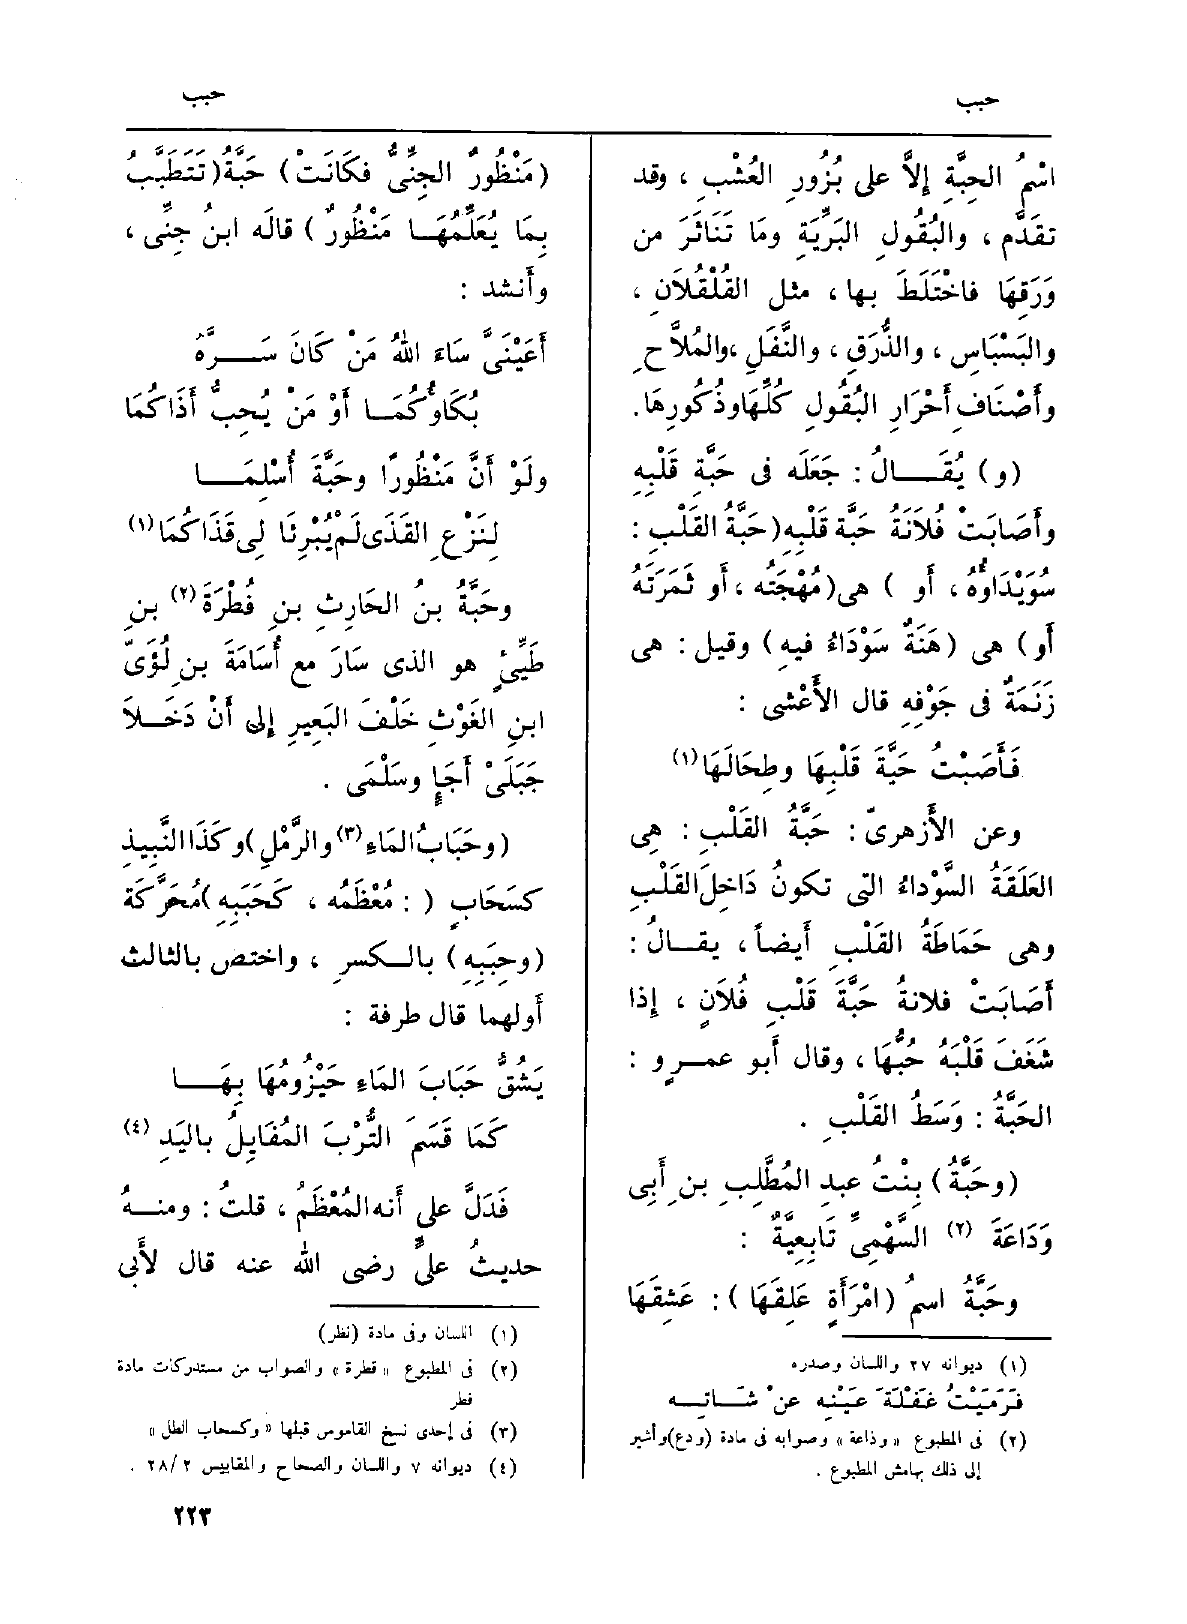 حبب
حبب
اسْمُ الحِبَّةِ إِلاَّ على بُزُورِ العُشْبِ ، وقد
تقدَّم ، والبُقُولِ البَرِّيَّةِ ومَا تَنَاثَرَ من
وَرَقِهَا فاخْتَلَطَ بها ، مثل القُلْقُلاَنِ ،
والبَسْبَاسِ ، والذُّرَقِ ، والنَّفَلِ ،والمُلاَّحِ
وأَصْنَافِ أَحْرَارِ البُقُولِ كُلِّهَا وذُكُورِهَا.
(و) يُقَـالُ : جَعَلَه فى حَبَّةِ قَلْبِهِ
وأَصَابَتْ فُلاَنَةُ حَبَّةَ قَلْبِه (حَبَّةُ القَلْبِ :
سُوَيْدَاوُهُ ، أَو ) هى (مُهْجَتُه ، أَو ثَمَرَتُه
أَو) هى (هَنَةٌ سَوْدَاءُ فيهِ) وقيل : هى
زَنَمَةٌ فى جَوْفِهِ قال الأَعْشى :
فَأَصَبْتُ حَبَّةَ قَلْبِهَا وطِحَالَهَا (١)
وعن الأَزهرىّ : حَبَّةُ القَلْبِ : هِى
العَلَقَةُ السَّوْدَاءُ التى تكونُ دَاخِلَ القَلْبِ
وهى حَمَاطَةُ القَلْبِ أَيضاً ، يقـالُ :
أَصَابَتْ فلانةُ حَبَّةَ قَلْبِ فُلاَنٍ ، إِذا
شَغَفَ قَلْبَهُ حُبُّهَا ، وقال أَبو عمـرٍو :
الحَبَّةُ : وَسَطُ القَلْبِ .
(وحَبَّةُ) بِنْتُ عبدِ المُطَّلِبِ بنِ أَبِى
وَدَاعَةَ (٢) السَّهْمِىِّ تَابِعِيَّةٌ :
وحَبَّةُ اسمُ (امْرَأَةٍ عَلِقَهَا ) : عَشِقَهَا
(١) ديوانه ٢٧ واللسان وصدره
فَرَمَيْتُ غَفْلَةَ عَيْنِهِ عنْ شَاتِـه
(٢) فى المطبوع «وذاعة» وصوابه فى مادة (ودع) وأشير
إلى ذلك بهامش المطبوع .
(مَنْظُورٌ الجِنِّىُّ فكَانَتْ) حَبَّةُ (تَتَطَبَّبُ
بِمَا يُعَلِّمُهَـا مَنْظُورٌ ) قالَه ابنُ جِنِّى ،
وأَنشد :
أَعَيْنَىَّ سَاءَ اللهُ مَنْ كَانَ سَــرَّهُ
بُكَاوُكُمَـا أَوْ مَنْ يُحِبُّ أَذَاكُمَا
ولَوْ أَنَّ مَنْظُورًا وحَبَّةَ أُسْلِمَـا
لِنَزْعِ القَذَى لَمْ يُبْرِئَا لِى قَذَاكُمَا (١)
وحَبَّةُ بنُ الحَارِثِ بنِ فُطْرَةَ (٢) بنِ
طَيِّئٍ هو الذى سَارَ مع أُسَامَةَ بنِ لُؤَىّ
ابنِ الغَوْثِ خَلْفَ البَعِيرِ إِلى أَنْ دَخَـلاَ
جَبَلَىْ أَجَإٍ وسَلْمَى .
(وحَبَابُ المَاءِ (٣) والرَّمْلِ) وكَذَا النَّبِيذِ
كسَحَابٍ ( : مُعْظَمُه ، كَحَبَبِهِ) مُحَرَّكَة
(وحِبَبِهِ) بالـكسرِ ، واختص بالثالث
أَولهما قال طرفة :
يَشُقُّ حَبَابَ المَاءِ حَيْزُومُهَا بِهَـا
كَمَا قَسَمَ التُّرْبَ المُفَايِلُ باليَدِ (٤)
فَدَلَّ على أَنه المُعْظَمُ ، قلتُ : ومنـهُ
حديثُ علىٍّ رضى الله عنه قال لأَبى
(١) اللسان وفى مادة (نظر)
(٢) فى المطبوع « قطرة » والصواب من مستدركات مادة
فطر
(٣) فى إحدى نسخ القاموس قبلها « وكسحاب الطل »
(٤) ديوانه ٧ واللسان والصحاح والمقاييس ٢٨/٢ .
٢٢٣